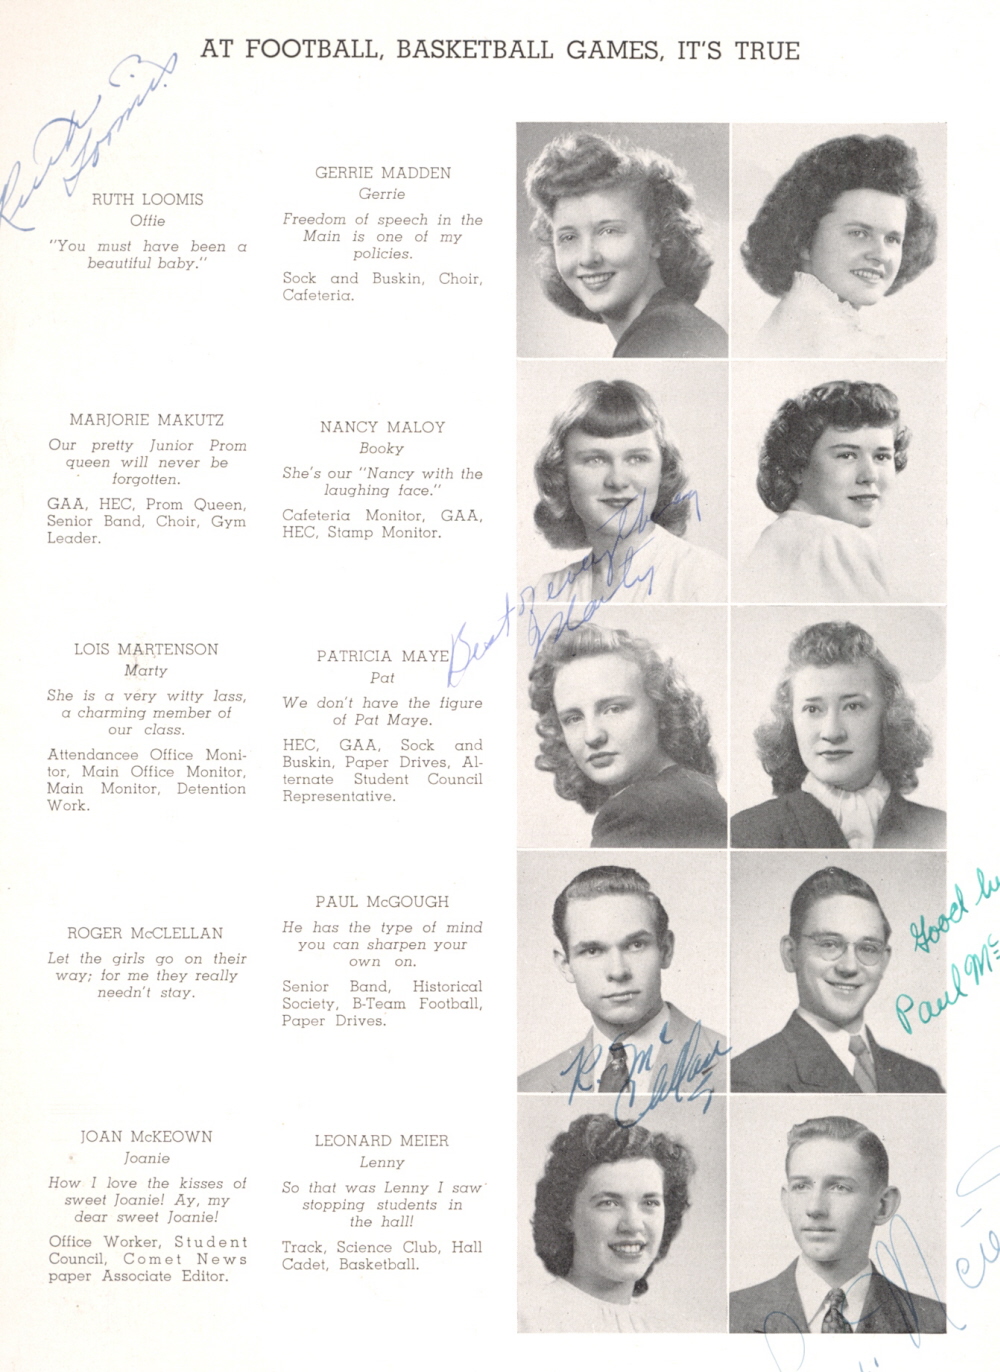 AT FOOTBALL, BASKETBALL GAMES, IT'S TRUE
Ruth
Loomis
RUTH LOOMIS
Offie
"You must have been a
beautiful baby."
GERRIE MADDEN
Gerrie
Freedom of speech in the
Main is one of my
policies.
Sock and Buskin, Choir,
Cafeteria.
MARJORIE MAKUTZ
Our pretty Junior Prom
queen will never be
forgotten.
GAA, HEC, Prom Queen,
Senior Band, Choir, Gym
Leader.
NANCY MALOY
Booky
She's our "Nancy with the
laughing face."
Cafeteria Monitor, GAA,
HEC, Stamp Monitor.
Best of everything
Marty
LOIS MARTENSON
Marty
She is a very witty lass,
a charming member of
our class.
Attendancee Office Moni-
tor, Main Office Monitor,
Main Monitor, Detention
Work.
PATRICIA MAYE
Pat
We don't have the figure
of Pat Maye.
HEC, GAA, Sock and
Buskin, Paper Drives, Al-
ternate Student Council
Representative.
ROGER McCLELLAN
Let the girls go on their
way; for me they really
needn't stay.
PAUL McGOUGH
He has the type of mind
you can sharpen your
own on.
Senior Band, Historical
Society, B-Team Football,
Paper Drives.
Good lu
Paul Mc
R. Mc
Clellan
JOAN McKEOWN
Joanie
How I love the kisses of
sweet Joanie! Ay, my
dear sweet Joanie!
Office Worker, Student
Council, Comet News
paper Associate Editor.
LEONARD MEIER
Lenny
So that was Lenny I saw
stopping students in
the hall!
Track, Science Club, Hall
Cadet, Basketball.